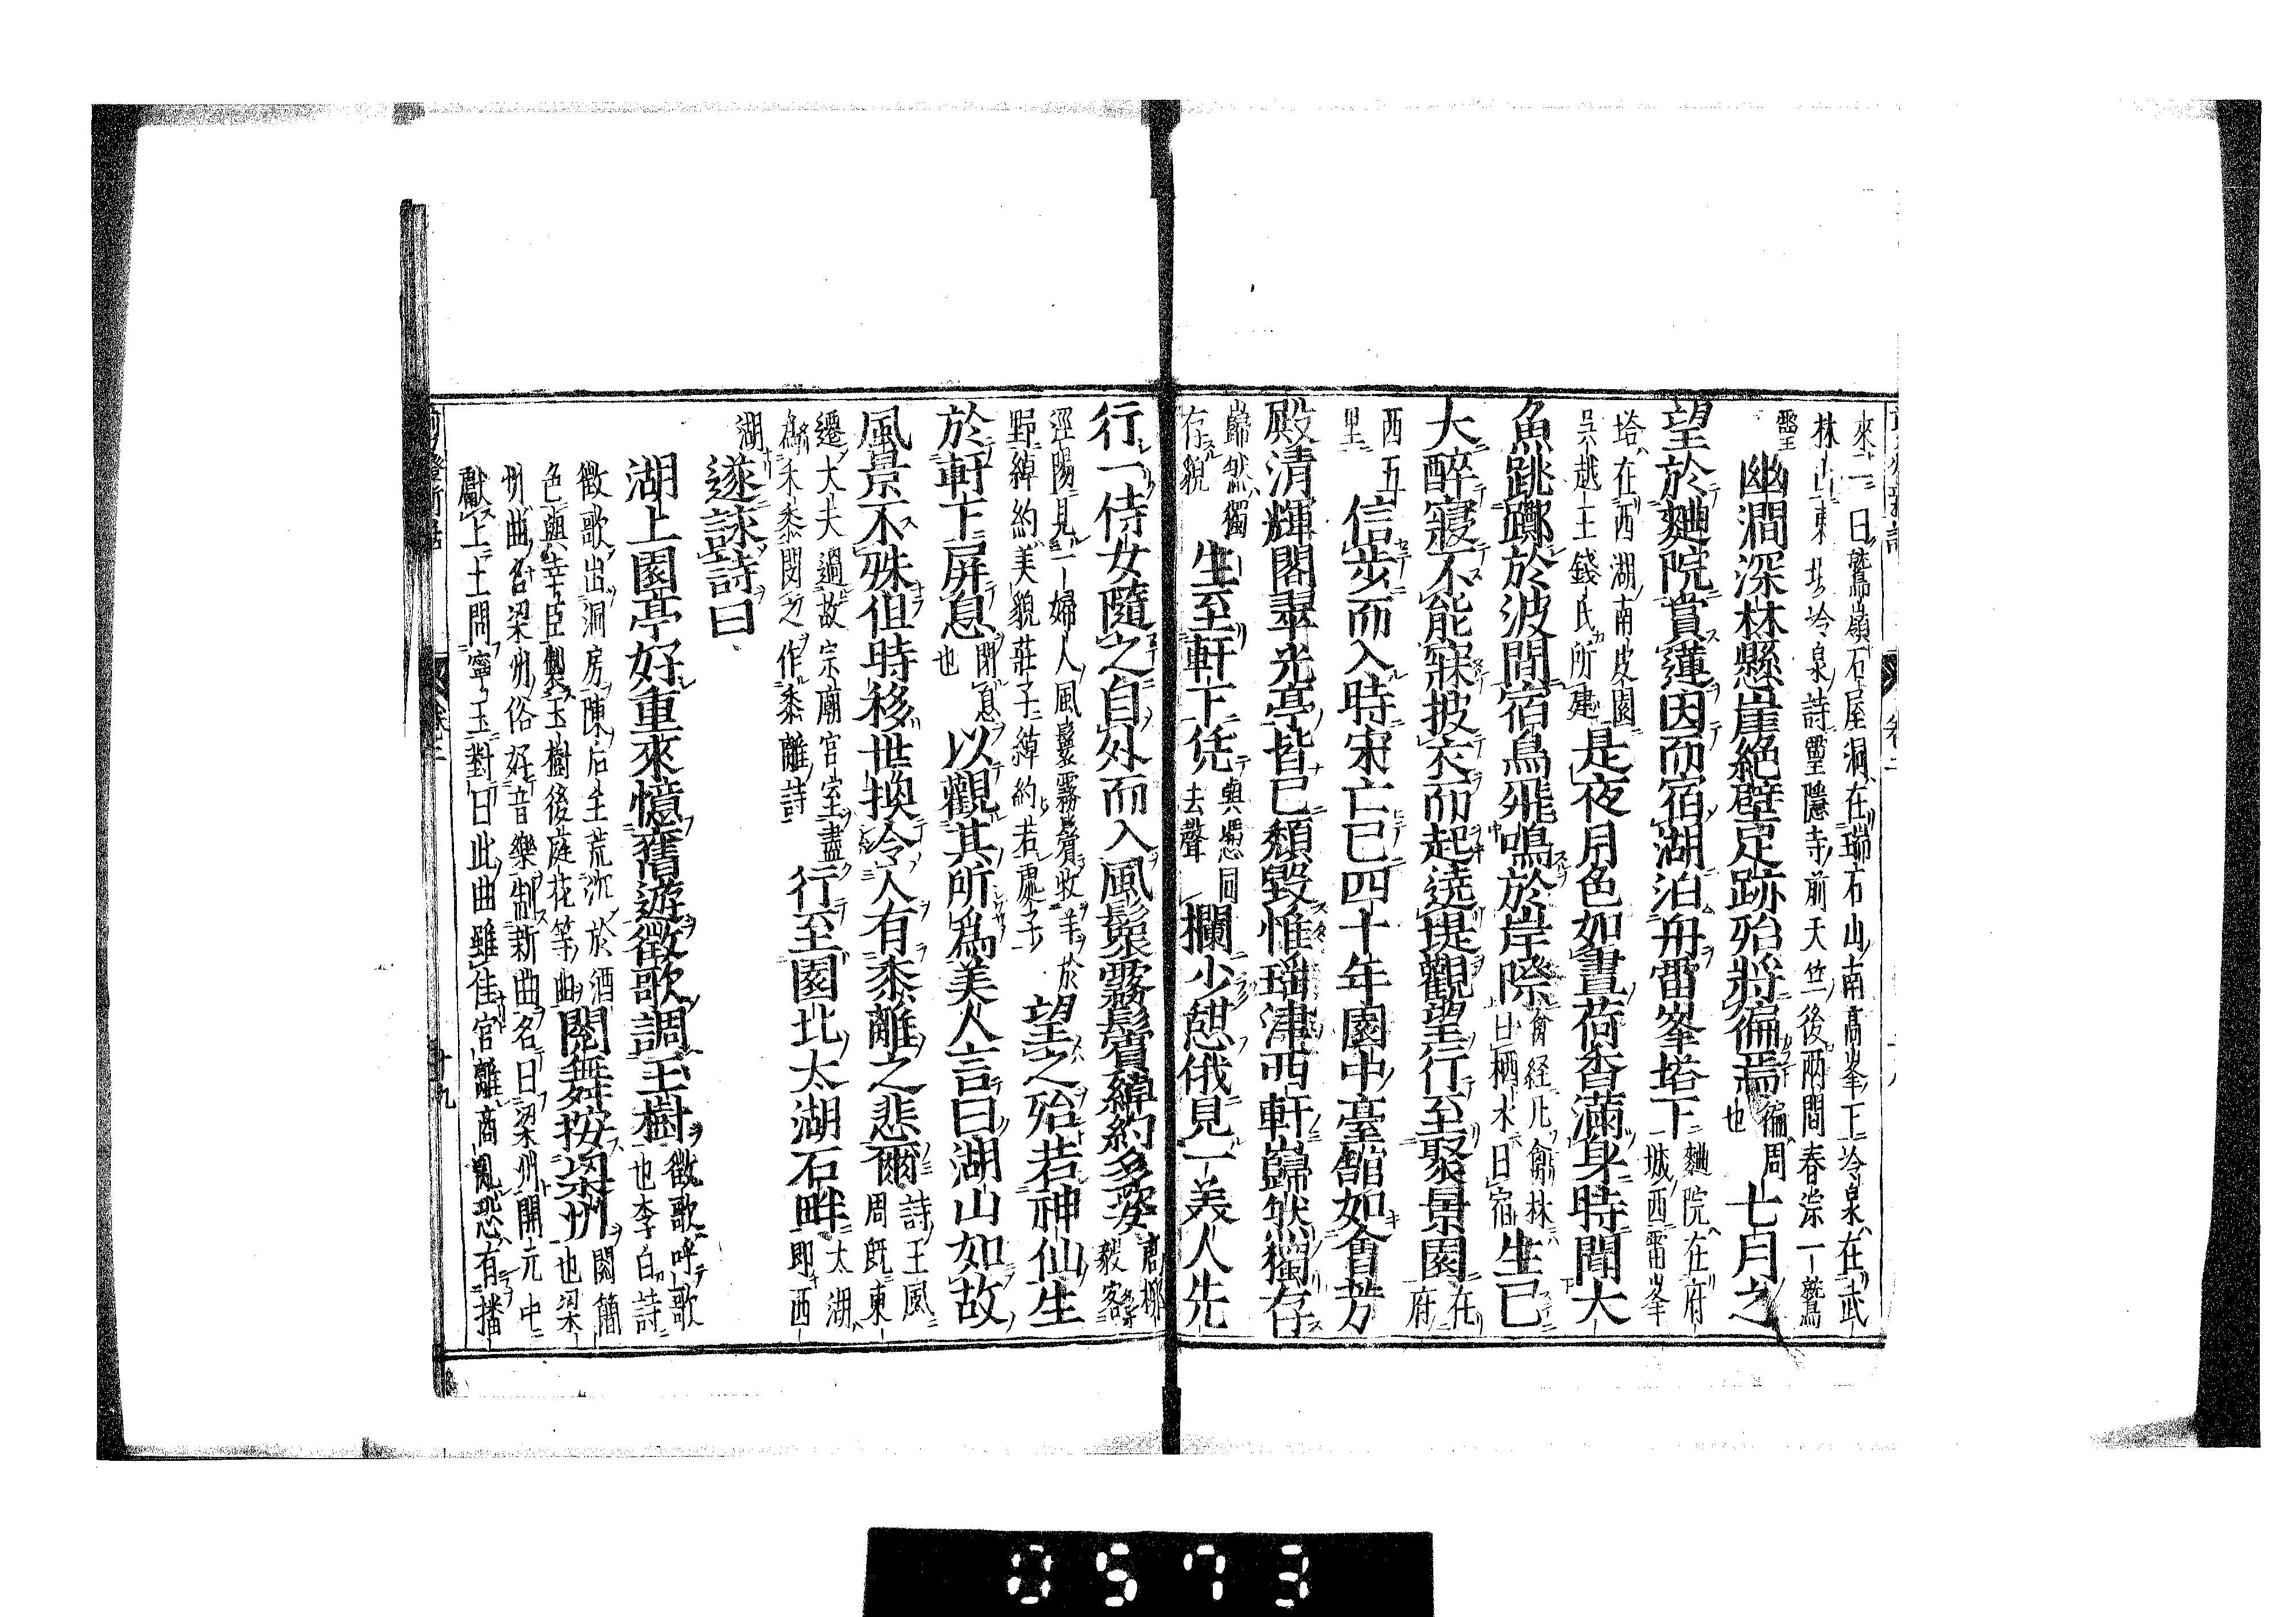 來一日鷲嶺石屋洞在瑞石山南高峯下冷泉在武
林山東坡冷泉詩靈隱寺前天竺後兩間春淙一鷲
靈幽澗深林懸崖絕壁足跡殆將徧焉徧周也七月之
望於麯院賞蓮因而宿湖泊舟雷峯塔下麯院在府城西雷峯
塔在西湖南皮園吳越王錢氏所建是夜月色如晝荷香滿身時聞大
魚跳躑於波間宿鳥飛鳴於岸際禽経凡禽林曰栖水曰宿生已
大醉寢不能寐披衣而起遶堤觀望行至聚景園在府
西五里信步而入時宋亡已四十年園中臺館如會芳
殿清輝閣翠光亭皆已頹毀惟瑤津西軒巋然獨存
巋然獨存貌生至軒下凭與凴同去聲欄少憩俄見一美人先
行一侍女隨之自外而入風鬟霧鬢綽約多姿唐柳毅客
涇陽見一婦人風鬟霧鬢牧羊於野綽約美貌莊子綽約若處子望之殆若神仙生
於軒下屏息閉息也以觀其所爲美人言曰湖山如故
風景不殊但時移世換令人有黍離之悲爾詩王風周既東
遷大夫過故宗廟宮室盡爲禾黍閔之作黍離詩行至園北太湖石畔太湖即西
湖遂詠詩曰
湖上園亭好重來憶舊遊徵歌調玉樹徵歌呼歌也李白詩
徵歌出洞房陳后主荒沉於酒色與幸臣製玉樹後庭花等曲閱舞按梁州閱簡也梁
州曲名梁州俗好音樂制新曲名曰梁州開元中
獻上上問寧王對曰此曲雖佳宮離商亂恐有播
剪燈新話 卷二 十九
0573